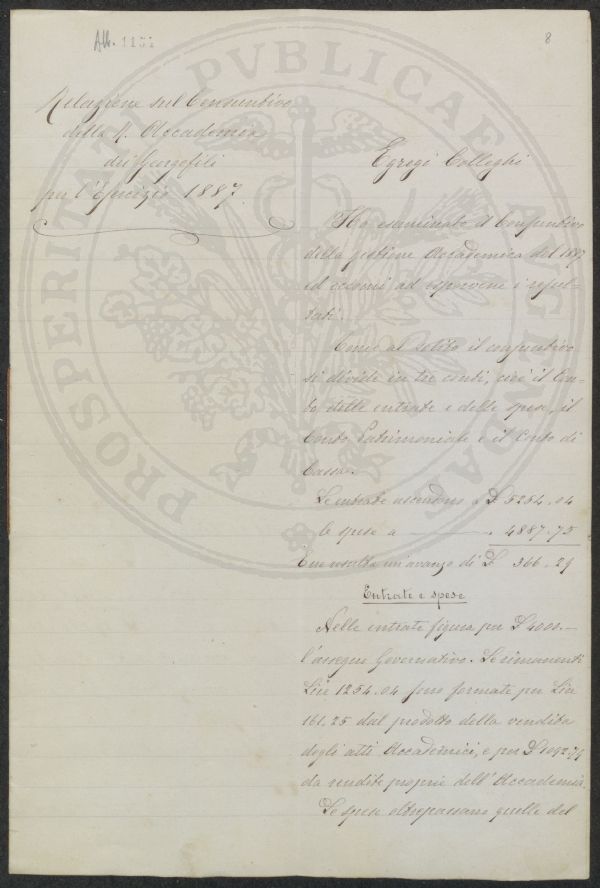 Alt. 1151
8
Relazione sul Consuntivo
della R. Accademia
dei Georgofili
per l'Esercizio 1887
Egregi Colleghi
Ho esaminato il Consuntivo
della gestione Accademica del 1887
ed eccomi ad esporvene i resul-
tati.
Come al solito il consuntivo
si divide in tre conti, cioè il Con-
to delle entrate e delle spese, il
Conto Patrimoniale e il Conto di
Cassa.
Le entrate ascendono a £ 5254.04
le spese a 4887.75
E ne resulta un avanzo di £ 366.29
Entrate e spese
Nelle entrate figura per £ 4000.—
l'assegno Governativo. Le rimanenti
Lire 1254.04 sono formate per Lire
161.25 dal prodotto della vendita
degli atti Accademici, e per £ 1092.79
da rendite proprie dell'Accademia.
Le spese oltrepassano quelle del
PROSPERITATI PVBLICAE AVGENDAE